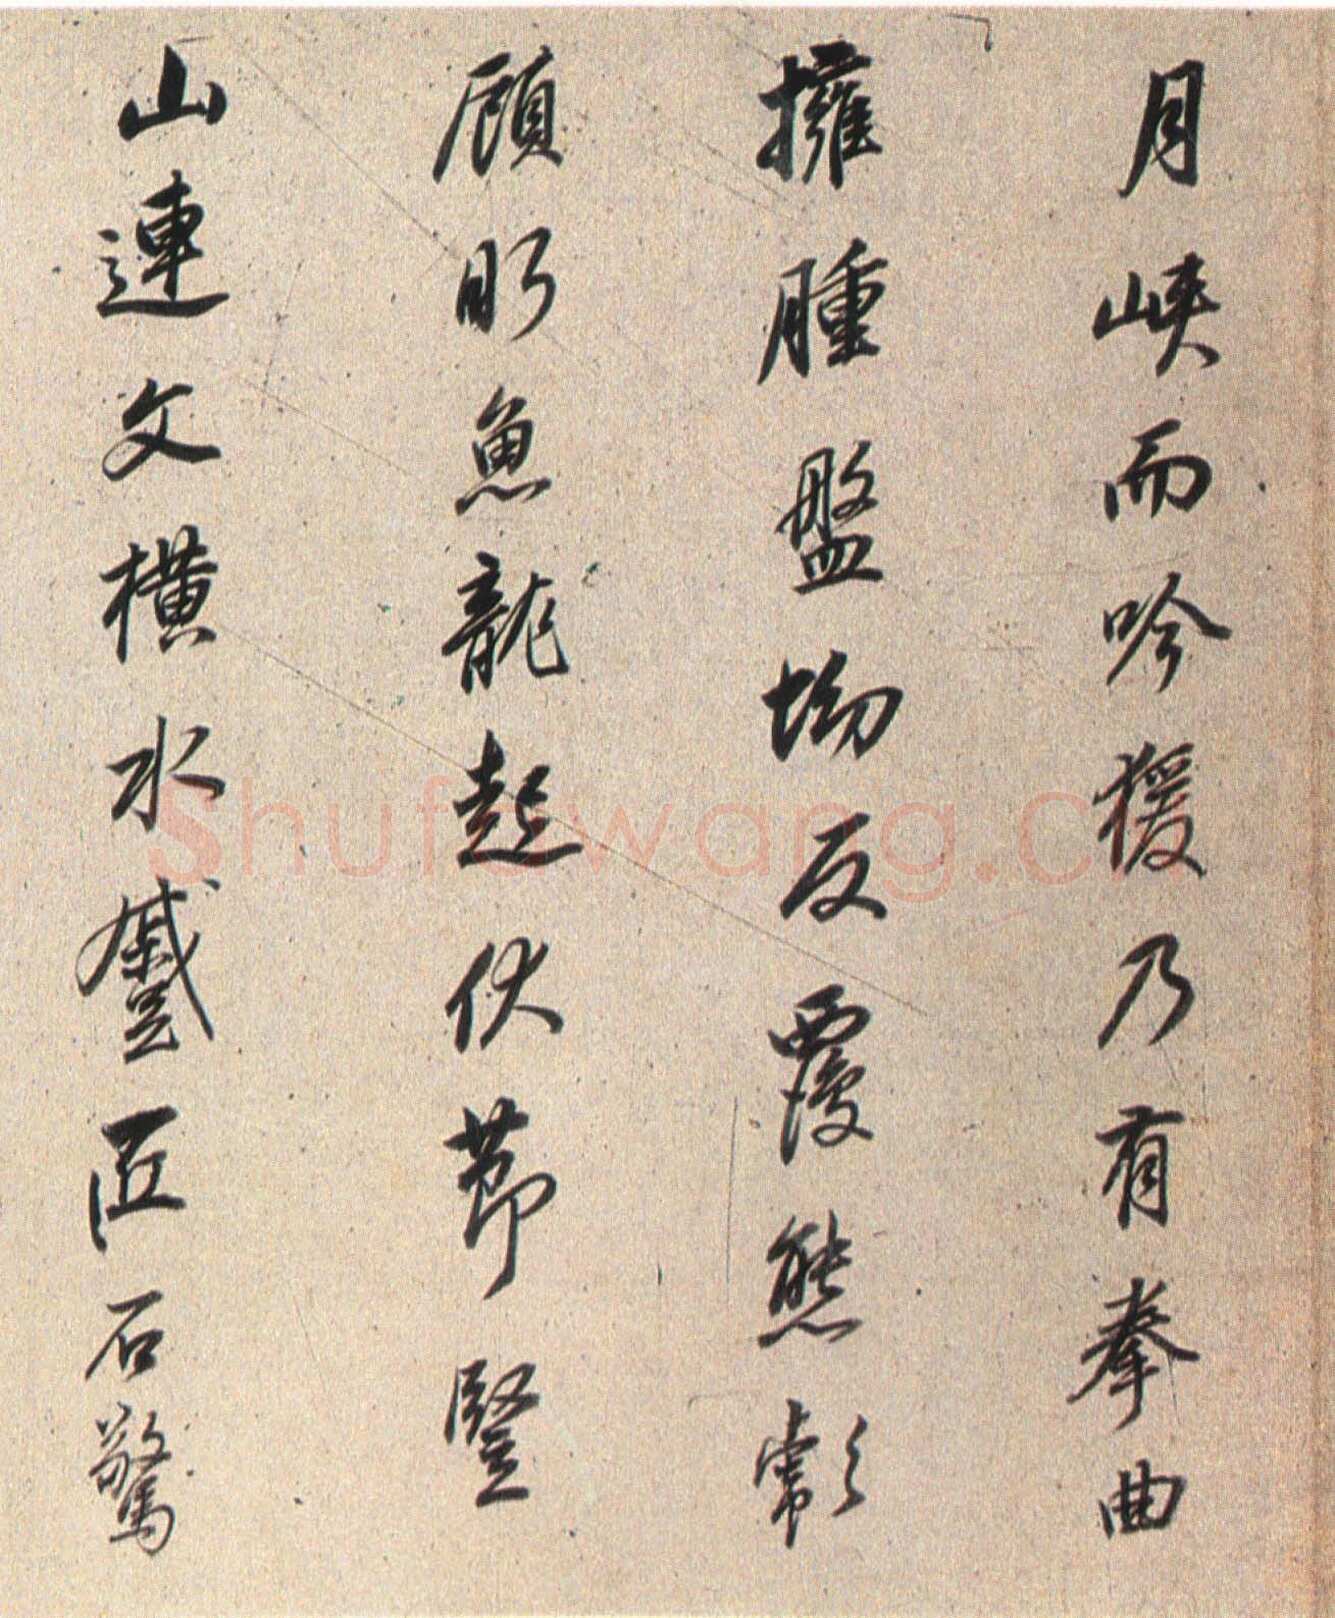 月峽而吟猨乃有拳曲
擁腫盤坳反覆熊彪
顧盼魚龍起伏節豎
山連文橫水蹙匠石驚
Shufawang.c